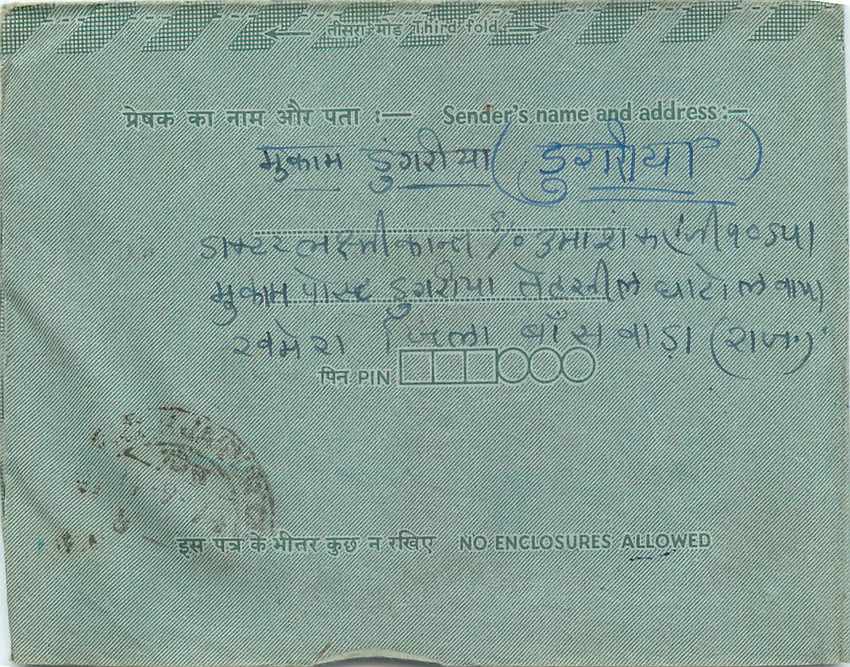 तीसरा मोड़ Third fold
प्रेषक का नाम और पता :— Sender's name and address :—
मुकाम डुंगरीया (डुगरीया)
डाक्टर लक्ष्मीकान्त S/o उमाशंकरजी
मुकाम पोस्ट डुगरीया तेहसील घाटोल वाया
खमेरा जिला बाँसवाड़ा (राज॰)
पिन PIN
इस पत्र के भीतर कुछ न रखिए NO ENCLOSURES ALLOWED